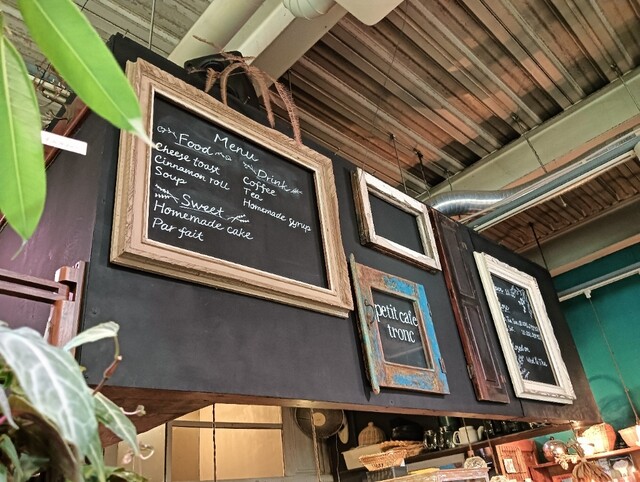 Menu
Food
Cheese toast
Cinnamon roll
Soup
Drink
Coffee
Tea
Homemade syrup
Sweet
Homemade cake
Par fait
petit cafe
tronc